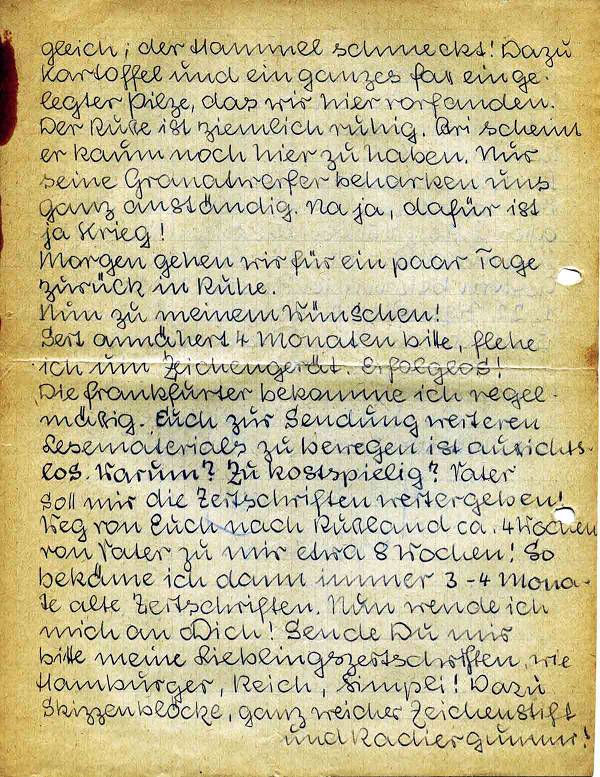 gleich; der Hammel schmeckt! Dazu
Kartoffel und ein ganzes fas einge-
legter Pilze, das wir hier vorfanden.
Der Ruße ist ziemlich ruhig. Bri scheint
er kaum noch hier zu haben. Nur
seine Granatwerfer beharken uns
ganz anständig. Na ja, dafür ist
ja Krieg!
Morgen gehen wir für ein paar Tage
zurück in Ruhe.
Nun zu meinem Wünschen!
Seit annähert 4 Monaten bitte, flehe
ich um Zeichengerät. Erfolglos!
Die Frankfurter bekomme ich regel-
mäßig. Euch zur Sendung weiteren
Lesematerials zu bewegen ist aussichts-
los. Warum? Zu kostspielig? Vater
soll mir die Zeitschriften weitergeben!
Weg von Euch nach Rußland ca. 4 Wochen
von Vater zu mir etwa 8 Wochen! So
bekäme ich dann immer 3-4 Mona-
te alte Zeitschriften. Nun wende ich
mich an Dich! Sende Du mir
bitte meine Lieblingszeitschriften, wie
Hamburger, Reich, Simpli! Dazu
Skizzenblöcke, ganz weicher Zeichenstift
und Radiergummi!